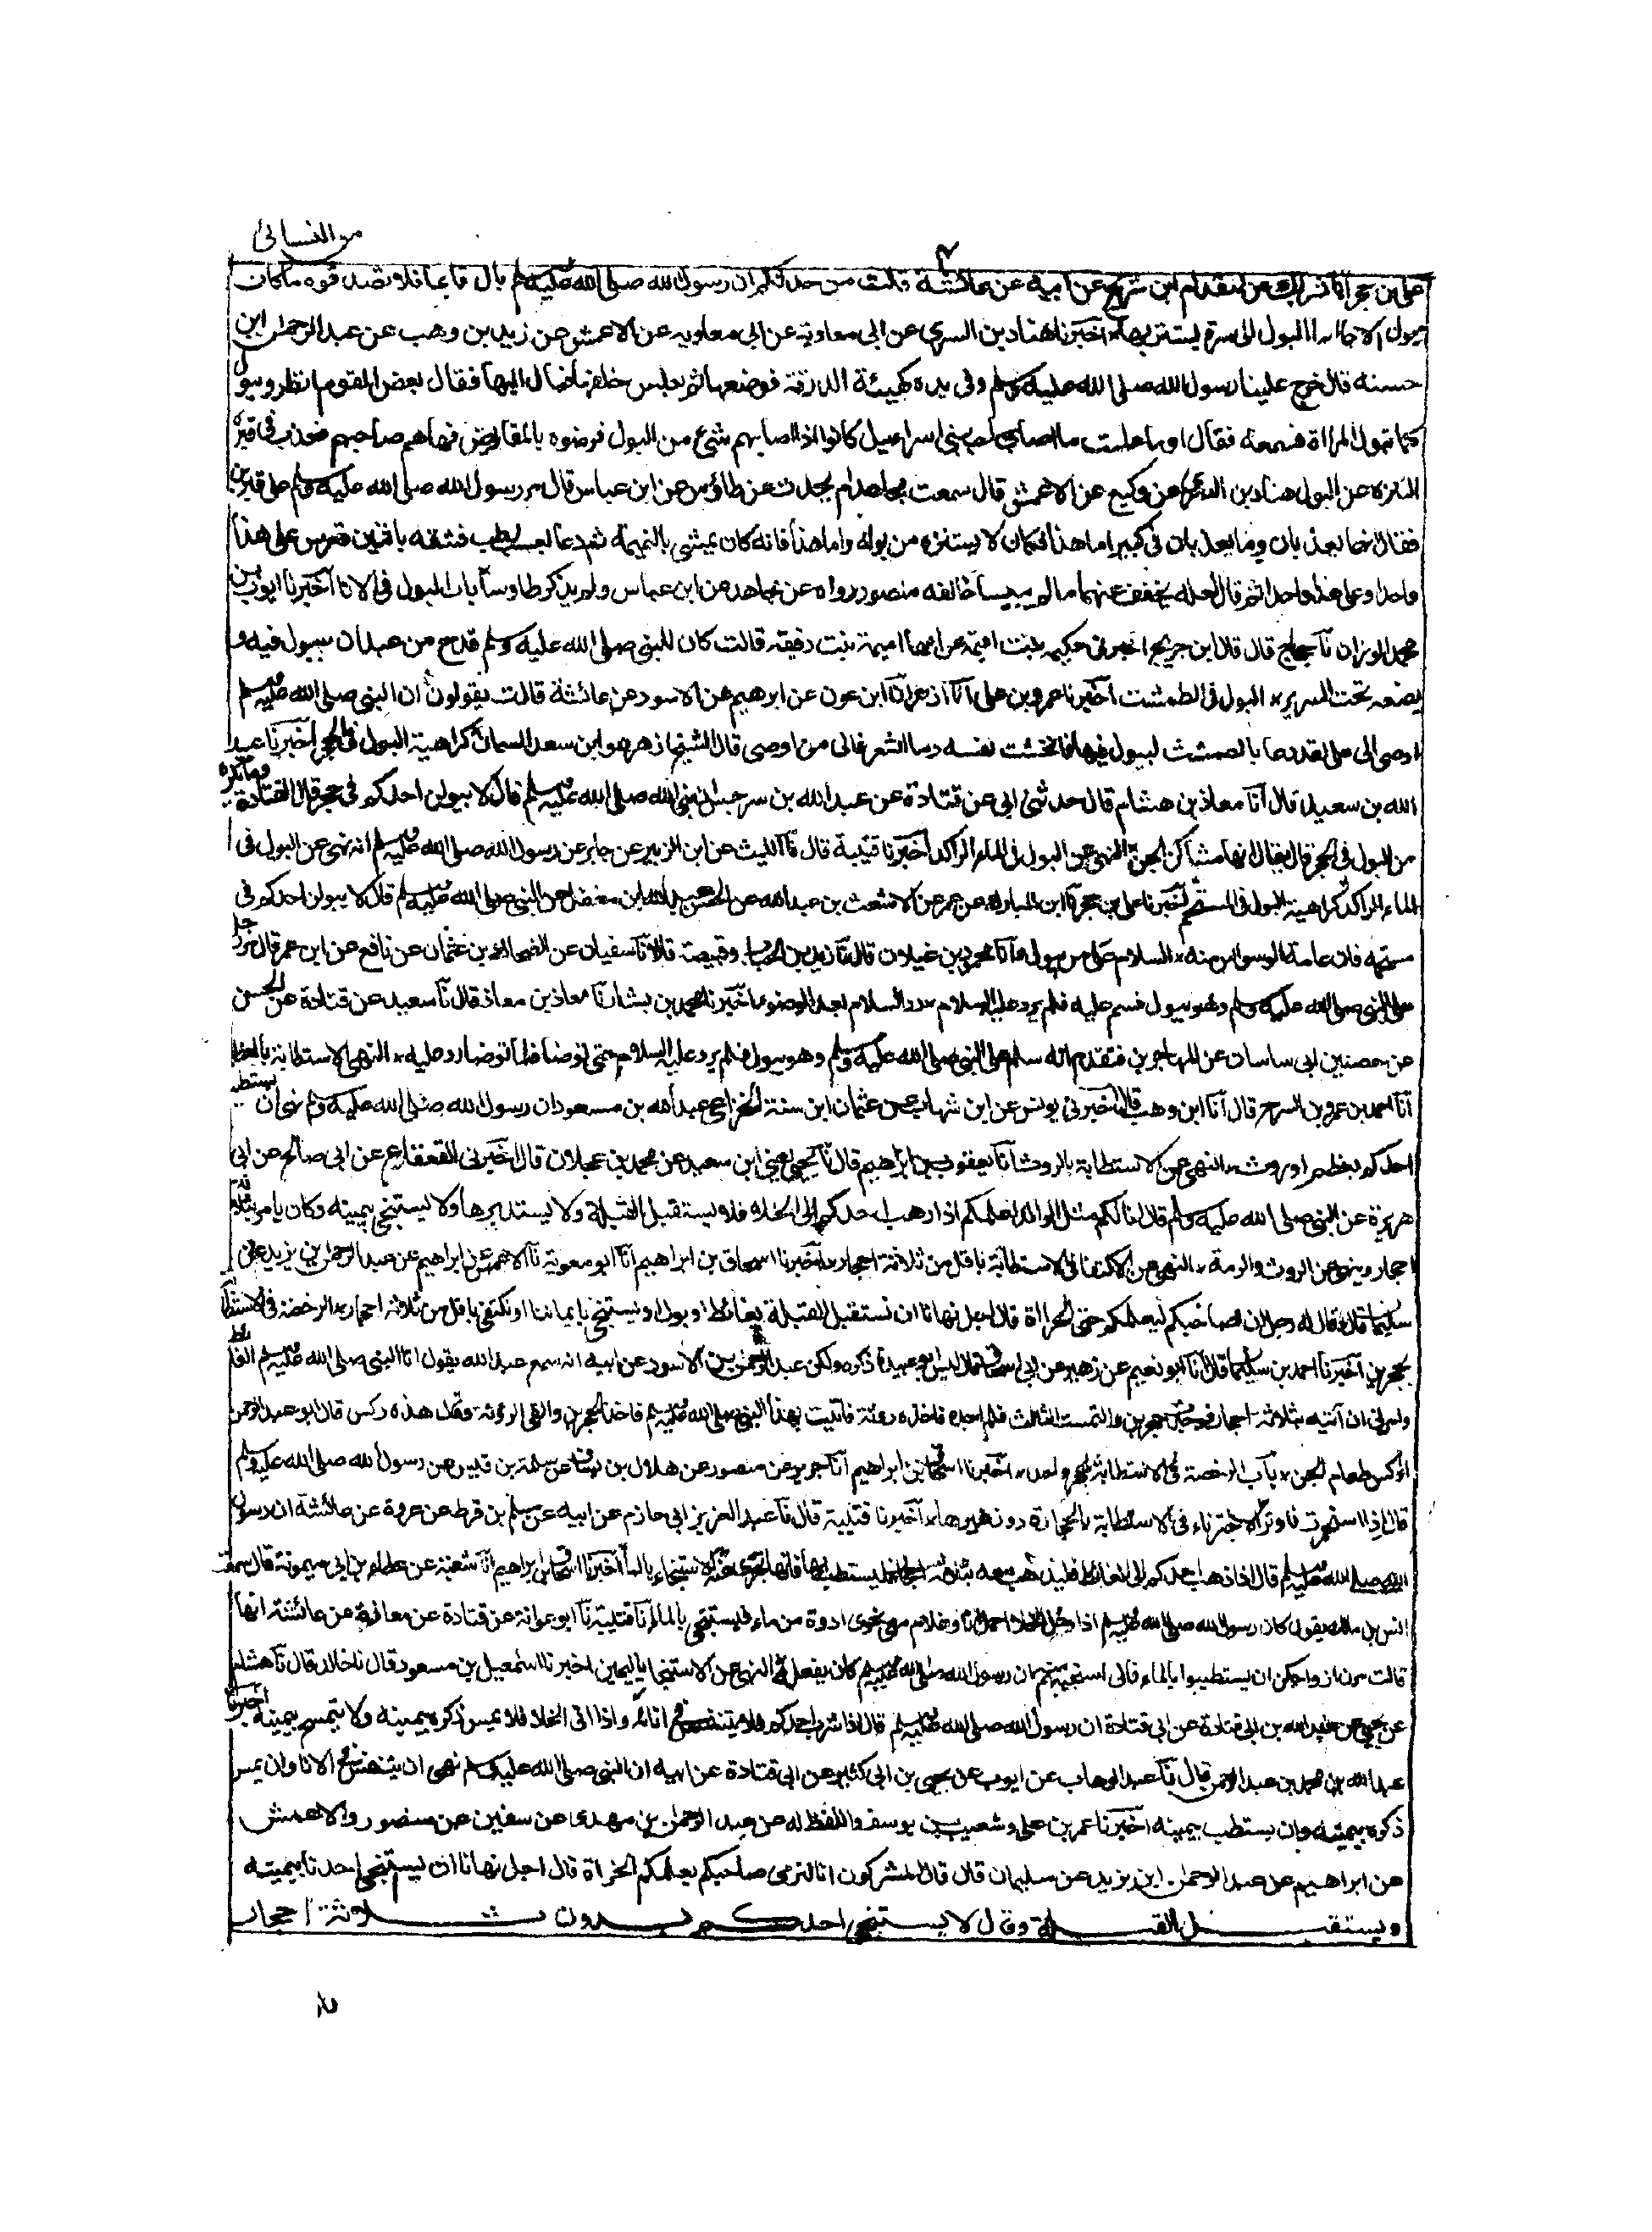 من النسائى
على بن حجر انا شريك عن المقدام ابن شريح عن ابيه عن عائشة قالت من حدثكم ان رسول الله صلى الله عليه وسلم بال قائما فلا تصدقوه ما كان
يبول الا جالسا البول الى سترة يستتر بها اخبرنا هناد بن السرى عن ابى معاوية عن ابى معاويه عن الاعمش عن زيد بن وهب عن عبد الرحمن ابن
حسنه قال خرج علينا رسول الله صلى الله عليه وسلم وفى يده كهيئة الدرقة فوضعها ثم جلس خلفها فبال اليها فقال بعض القوم انظروا يبول
كما تبول المراة فسمعه فقال اوما علمت ما اصاب صاحب بنى اسرائيل كانوا اذا اصابهم شئ من البول قرضوه بالمقاريض فنهاهم صاحبهم فعذب فى قبره
التنزه عن البول هناد بن السرى عن وكيع عن الاعمش قال سمعت مجاهدا يحدث عن طاؤس عن ابن عباس قال مر رسول الله صلى الله عليه وسلم على قبرين
فقال انهما يعذبان وما يعذبان فى كبير اما هذا فكان لا يستنزه من بوله واما هذا فانه كان يمشى بالنميمة ثم دعا بعسيب رطب فشقه باثنين فغرس على هذا
واحدا وعلى هذا واحدا ثم قال لعله يخفف عنهما ما لم ييبسا خالفه منصور رواه عن مجاهد عن ابن عباس ولم يذكر طاوسا باب البول فى الانا اخبرنا ايوب بن
محمد الوزان نا حجاج قال قال ابن جريج اخبرتنى حكيمه بنت اميمة عن امها اميمة بنت رقيقه قالت كان للنبى صلى الله عليه وسلم قدح من عيدان يبول فيه و
يضعه تحت السرير البول فى الطشت اخبرنا عمرو بن على انا ازهر انا ابن عون عن ابرهيم عن الاسود عن عائشة قالت يقولون ان النبى صلى الله عليه وسلم
اوصى الى على لقد دعا بالطشت ليبول فيها فانخنثت نفسه وما اشعر فالى من اوصى قال الشيخ ازهر هو ابن سعد السمان كراهية البول فى الجحر اخبرنا عبيد
الله بن سعيد قال انا معاذ بن هشام قال حدثنى ابى عن قتادة عن عبد الله بن سرجس ان نبى الله صلى الله عليه وسلم قال لا يبولن احدكم فى جحر قالوا لقتادة وما يكره
من البول فى الجحر قال يقال انها مساكن الجن النهى عن البول فى الماء الراكد اخبرنا قتيبة قال نا الليث عن ابن الزبير عن جابر عن رسول الله صلى الله عليه وسلم انه نهى عن البول فى
الماء الراكد كراهية البول فى المستحم اخبرنا على بن حجر نا ابن المبارك عن معمر عن الاشعث بن عبد الله عن الحسن عن عبد الله ابن مغفل عن النبى صلى الله عليه وسلم قال لا يبولن احدكم فى
مستحمه فان عامة الوسواس منه السلام على من يبول نا محمود بن غيلان قال نا زيد بن الحباب وقبيصة قالا نا سفيان عن الضحاك بن عثمان عن نافع عن ابن عمر قال مر رجل
على النبى صلى الله عليه وسلم وهو يبول فسلم عليه فلم يرد عليه السلام رد السلام بعد الوضوء اخبرنا محمد بن بشار نا معاذ بن معاذ قال نا سعيد عن قتادة عن الحسن
عن حصنين ابى ساسان عن المهاجر بن قنفذ انه سلم على النبى صلى الله عليه وسلم وهو يبول فلم يرد عليه السلام حتى توضا فلما توضا رد عليه النهى الاستطابة بالعظم
انا احمد بن عمرو بن السرح قال انا ابن وهب قال اخبرنى يونس عن ابن شهاب عن عثمان ابن سنة الخزاعى عبد الله بن مسعود ان رسول الله صلى الله عليه وسلم نهى ان يستطيب
احدكم بعظم او روث النهى عن الاستطابة بالروث انا يعقوب بن ابراهيم قال نا يحيى يعنى ابن سعيد عن محمد بن عجلان قال اخبرنى القعقاع عن ابى صالح عن ابى
هريرة عن النبى صلى الله عليه وسلم قال انا لكم مثل الوالد اعلمكم اذا ذهب احدكم الى الخلاء فلا يستقبل القبلة ولا يستدبرها ولا يستنجى بيمينه وكان يامر بثلاثة
احجار وينهى عن الروث والرمة النهى عن الاكتفا فى الاستطابة باقل من ثلاثة احجار اخبرنا اسحاق بن ابراهيم انا ابو معوية نا الاعمش عن ابراهيم عن عبد الرحمن بن يزيد عن
سليمان قال قال له رجل ان صاحبكم ليعلمكم حتى الخراة قال اجل نهانا ان نستقبل القبلة بغائط او بول او نستنجى بايماننا او نكتفى باقل من ثلاثة احجار الرخصة فى الاستطابة
بحجرين اخبرنا احمد بن سليمان قال نا ابو نعيم عن زهير عن ابى اسحاق قال ليس ابو عبيدة ذكره ولكن عبد الرحمن بن الاسود عن ابيه انه سمع عبد الله يقول اتا النبى صلى الله عليه وسلم الغائط
وامرنى ان آتيه بثلاثة احجار فوجدت حجرين والتمست الثالث فلم اجده فاخذت روثة فاتيت بهذا النبى صلى الله عليه وسلم فاخذ الحجرين والقى الروثة وقال هذه ركس قال ابو عبد الرحمن
الركس طعام الجن باب الرخصة فى الاستطابة بحجر واحد اخبرنا اسحاق بن ابراهيم انا جرير عن منصور عن هلال بن يساف عن سلمة بن قيس عن رسول الله صلى الله عليه وسلم
قال اذا استجمرت فاوتر الاجتزاء فى الاستطابة بالحجارة دون غيرها اخبرنا قتيبة قال نا عبد العزيز ابى حازم عن ابيه عن مسلم بن قرط عن عروة عن عائشة ان رسول
الله صلى الله عليه وسلم قال اذا ذهب احدكم الى الغائط فليذهب معه بثلاثة احجار فليستطب بها فانها تجزى عنه الاستنجاء بالما اخبرنا اسحاق بن ابراهيم انا شعبة عن عطاء بن ابى ميمونة قال سمعت
انس بن مالك يقول كان رسول الله صلى الله عليه وسلم اذا دخل الخلاء احمل انا وغلام معى نحوى ادوة من ماء فيستنجى بالماء نا قتيبة نا ابو عوانة عن قتادة عن معاذة عن عائشة انها
قالت مرن ازواجكن ان يستطيبوا بالماء فانى استحييهم ان رسول الله صلى الله عليه وسلم كان يفعله النهى عن الاستنجا باليمين اخبرنا اسمعيل بن مسعود قال نا خالد قال نا هشام
عن يحيى عن عبد الله بن ابى قتادة عن ابى قتادة ان رسول الله صلى الله عليه وسلم قال اذا شرب احدكم فلا يتنفس فى انائه واذا اتى الخلا فلا يمس ذكره بيمينه ولا يتمسح بيمينه اخبرنا
عبد الله بن محمد بن عبد الرحمن قال نا عبد الوهاب عن ايوب عن يحيى بن ابى كثير عن ابى قتادة عن ابيه ان النبى صلى الله عليه وسلم نهى ان يتنفس فى الانا وان يمس
ذكره بيمينه وان يستطب بيمينه اخبرنا عمر بن على وشعيب بن يوسف واللفظ له عن عبد الرحمن بن مهدى عن سفين عن منصور والاعمش
عن ابراهيم عن عبد الرحمن ابن يزيد عن سليمان قال قال المشركون انا لنرى صاحبكم يعلمكم الخراة قال اجل نهانا ان يستنجى احدنا بيمينه
ويستقبل القبلة وقال لا يستنجى احدكم بدون ثلاثة احجار